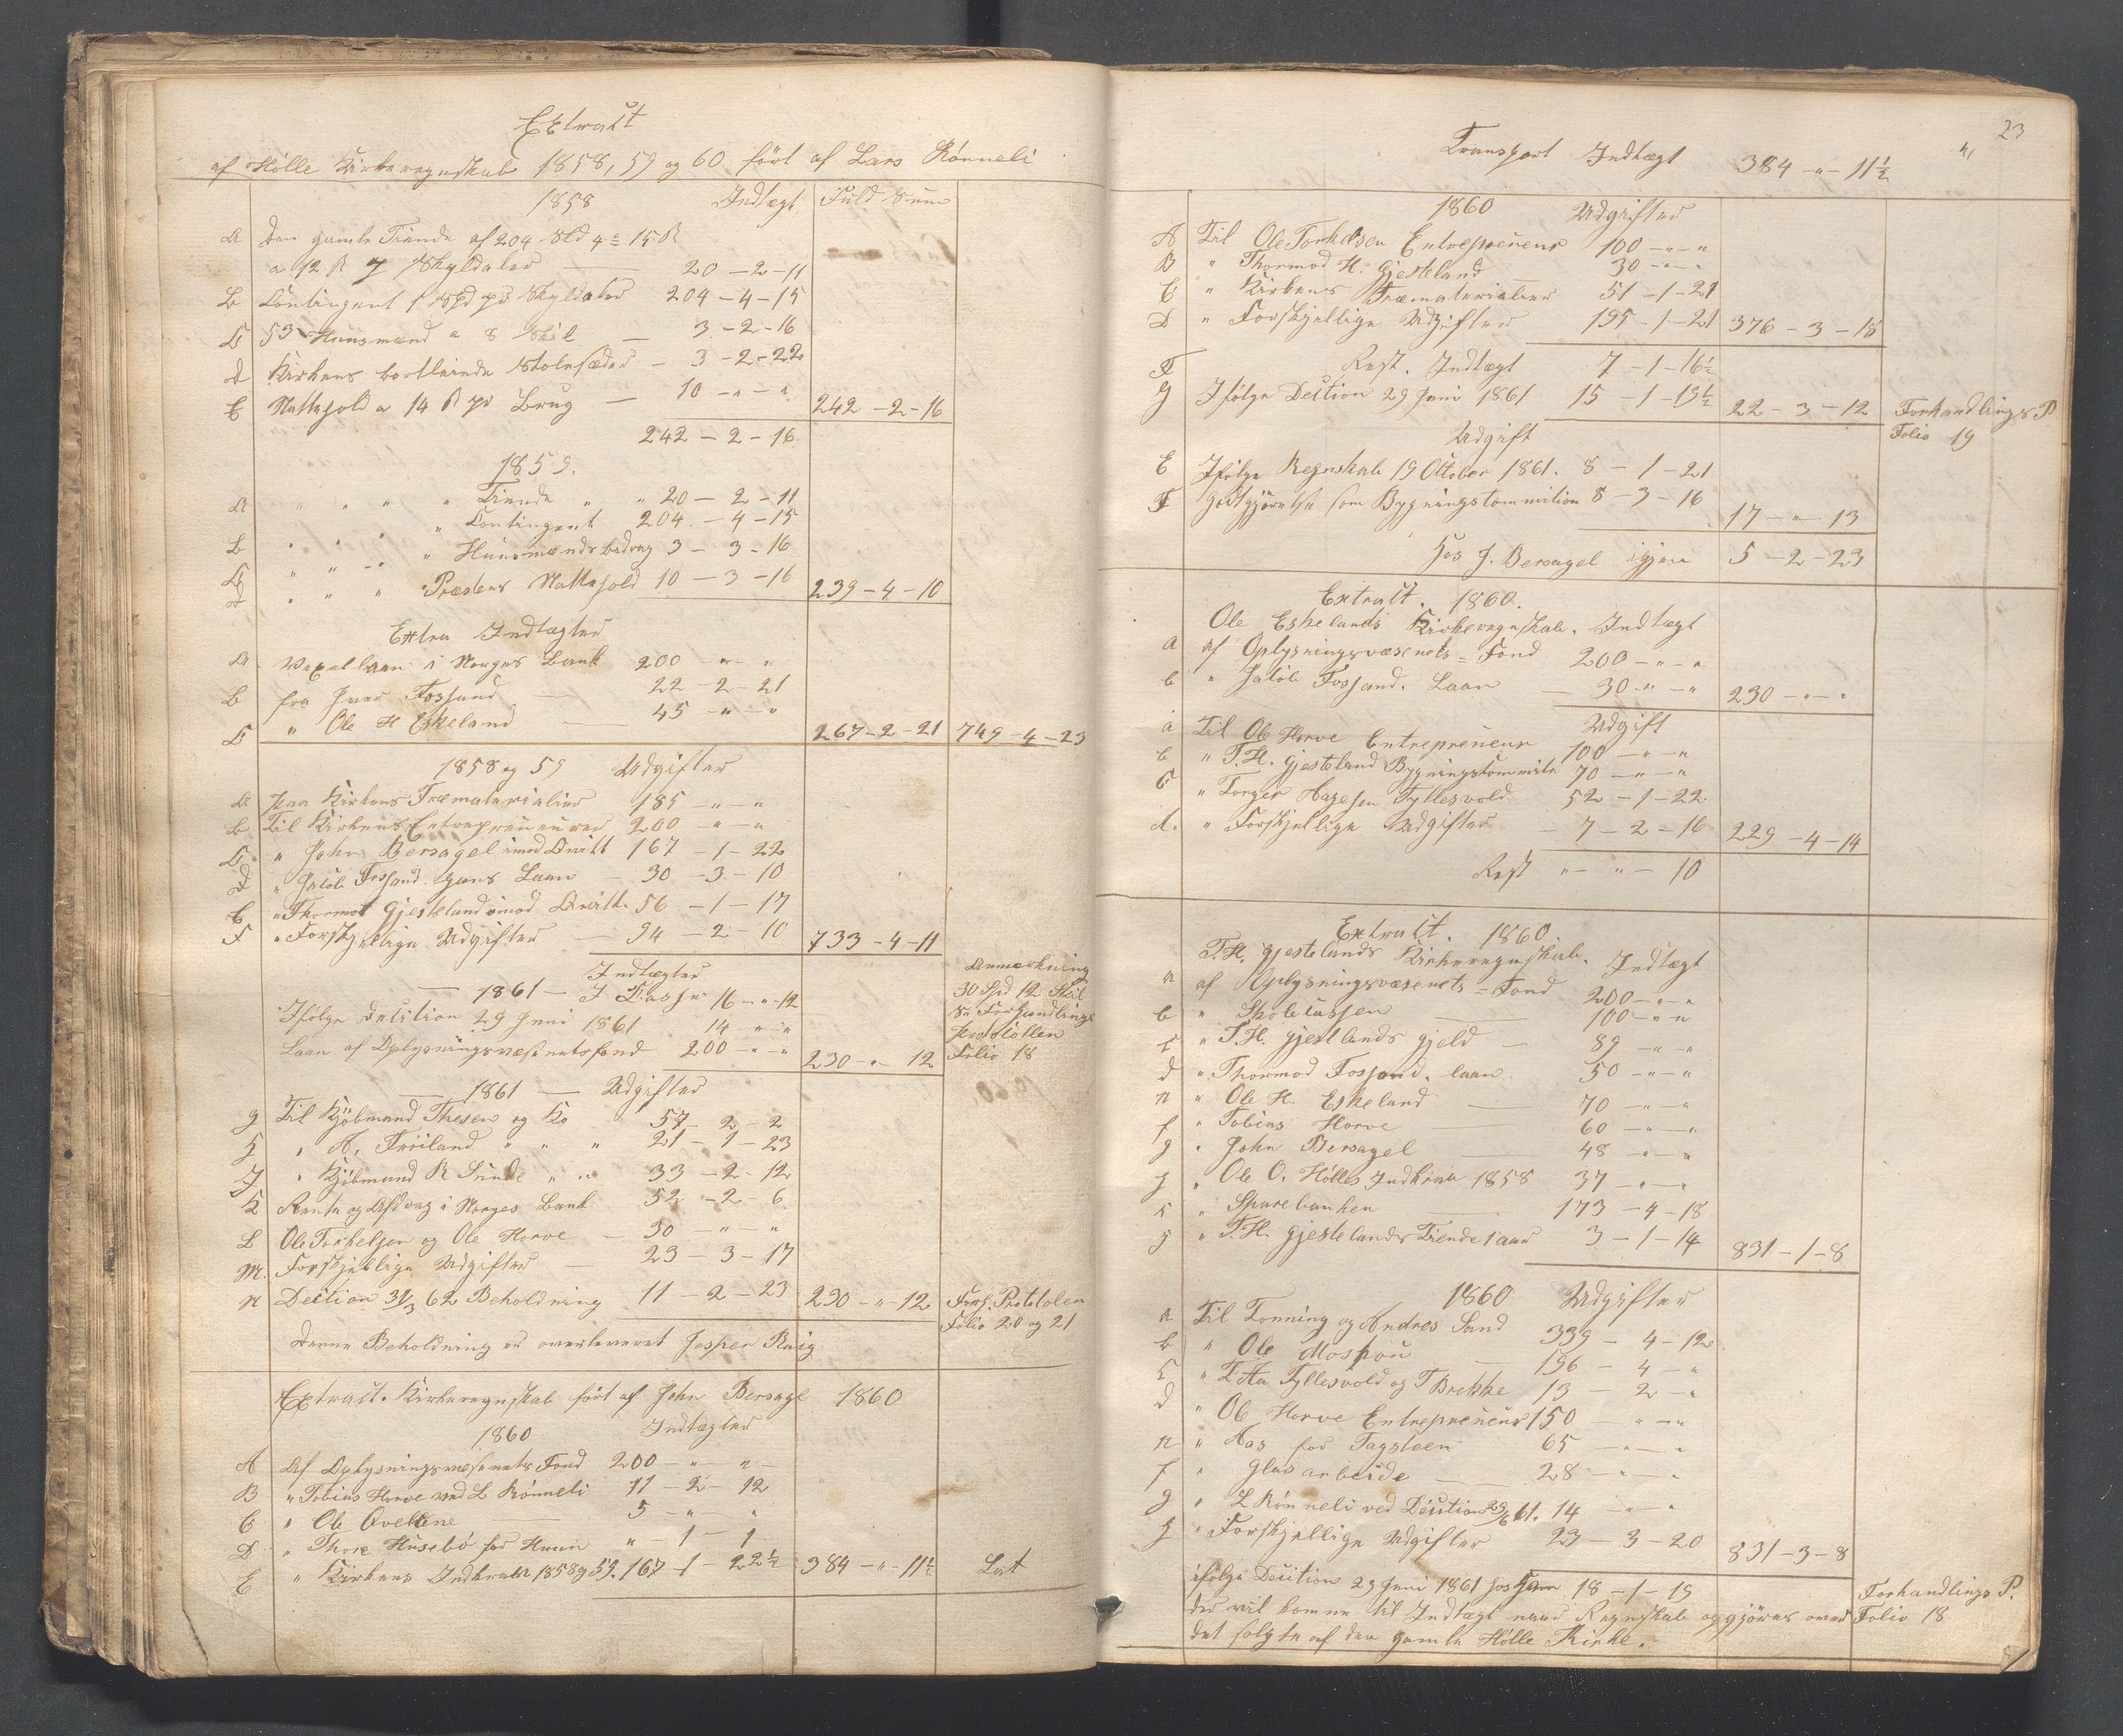 Extract
af Hölle Kirkeregnskab 1858, 59 og 60 fört af Lars Rönneli
1858 Indtægt Fuld Sum
A Den gamle Tiende af 204 Skd 4 = 15 ß
a 12 ß pr Skyldaler — 20 - 2 - 11
B Contingent 1 Spd pr Skyldaler 204 - 4 - 15
C 53 Huusmænd a 8 Skil — 3 - 2 - 16
D Kirkens bortleiede Stolesæder — 3 - 2 - 22
E Nattehold a 14 ß pr Brug — 10 - " - " 242 - 2 - 16
242 - 2 - 16
1859.
A " " " " Tiende " " 20 - 2 - 11
B " " " " Contingent 204 - 4 - 15
C " " " " Huusmænds bidrag 3 - 3 - 16
D " " " Præstens Nattehold 10 - 3 - 16 239 - 4 - 10
Extra Indtægter
A Vexellaan i Norges Bank 200 - " - "
B fra Iver Fossand — 22 - 2 - 21
C " Ole H Eskeland — 45 - " - " 267 - 2 - 21 749 - 4 - 23
1858 og 59 Udgifter
A Kirkens Træmaterialier 185 - " - "
B Til Kirkens Entrepreneurer 200 - " - "
C " John Bersagel imod Qvitt 167 - 1 - 22
D " Jakob Fossand hans Laan — 30 - 3 - 10
E " Thormod Gjesteland imod Qvitt. 56 - 1 - 17
F " Forskjellige Udgifter — 94 - 2 - 10 733 - 4 - 11
Indtægter
— 1861 — I Cassa 16 - " - 12
Ifölge Decition 29 Juni 1861 14 " - "
Laan af Oplysningsvæsenetsfond 200 - " - " 230 - " - 12
Anmærkning
30 Spd 12 Skil
Se Forhandlings
Protocollen
Folio 18
— 1861 — Udgifter
G Til Kjöbmand Thesen og Ko 57 - 2 - 2
H " A. Fröiland " " " 21 - 1 - 23
I " Kjöbmand R Sunde " " 33 - 2 - 12
K Rente og Afdrag i Norges Bank 52 - 2 - 6
L Ole Torkelsen og Ole Horve — 30 - " - "
M. Forskjellige Udgifter — 23 - 3 - 17
N Decition 31/3 62 Beholdning 11 - 2 - 23 230 - " - 12 Forh. Protokolen
Folio 20 og 21
Denne Beholdning er overleveret Jesper
Extract. Kirkeregnskab fört af John Bersagel 1860
1860 Indtægter
A Af Oplysningsvæsenets Fond 200 - " - " -
B " Tobias Horve ved L Rönneli 11 - 2 - 12
C " Ole — 5 - " - "
D " Thore Husebö for Huun " - 1 - 1
E " Kirkens Indkrav 1858 og 59. 167 - 1 - 22½ 384 - " - 11½ Lat
23
Transport Indtægt 384 - " - 11½
1860 Udgifter
A Til Ole Torkelsen Entrepreneur 100 - " - "
B " Thormod H. Gjesteland — 30 - " - "
C " Kirkens Træmaterialier 51 - 1 - 21
D " Forskjellige Udgifter 195 - 1 - 21 376 - 3 - 18
F Rest. Indtægt 7 - 1 - 16½
G Ifölge Decition 29 Juni 1861 15 - 1 - 19½ 22 - 3 - 12 Forhandlings P
Folio 19
Udgift
E Ifölge Regnskab 19 October 1861. 8 - 1 - 21
F Godtgjörelse som Bygningscommition 8 - 3 - 16
17 - " - 13
hos J. Bersagel igjen 5 - 2 - 23
Extract. 1860.
Ole Eskelands Kirkeregnskab. Indtægt
a af Oplysningsvæsenets = Fond 200 - " - "
b " Jakob Fossand. Laan — 30 - " - " 230 - " - "
Udgift
a Til Ole Horve Entrepreneur 100 - " - "
b " T. H. Gjesteland Bygningscommite 70 - " - "
c " Torger Aagesen Tyllesvold 52 - 1 - 22
d. " Forskjellige Udgifter — 7 - 2 - 16 229 - 4 - 14
Rest " - " - 10
Extract. 1860.
T. H. Gjestelands Kirkeregnskab. Indtægt
a af Oplysningsvæsenets = Fond 200 - " - "
b " Skolecassen — 100 - " - "
c " T. H. Gjestlands gjeld — 89 - " - "
d " Thormod Fossand. laan 50 - " - "
e " Ole H. Eskeland — 70 - " - "
f " Tobias Horve — 60 - " - "
g " John Bersagel — 48 - " - "
h " Ole O. Hölles Indkrav 1858 37 - " - "
i " Sparebanken — 173 - 4 - 18
j " T. H. Gjestelands Tiende 1 aar 3 - 1 - 14 831 - 1 - 8
1860 Udgifter
a Til Tonning og Andres Sand 339 - 4 - 12
b " Ole Moshou — 196 - 4 - "
c " T Aa Tyllesvold og T Brekke 13 - 2 - "
d " Ole Horve Entrepreneur 150 - " - "
e " Aas for Tagsteen 65 - " - "
f " Glasarbeide — 28 - " - "
g " L Rönneli ved Decition 29/6 61. 14 - " - "
h " Forskjellige Udgifter 23 - 3 - 20 831 - 3 - 8
ifölge Decition 29 Juni 1861 hos ham 18 - 1 - 19 Forhandlings P.
der vil komme til Indtægt naar Regnskab opgjöres over Folio 18
det solgte af den gamle Hölle Kirke.